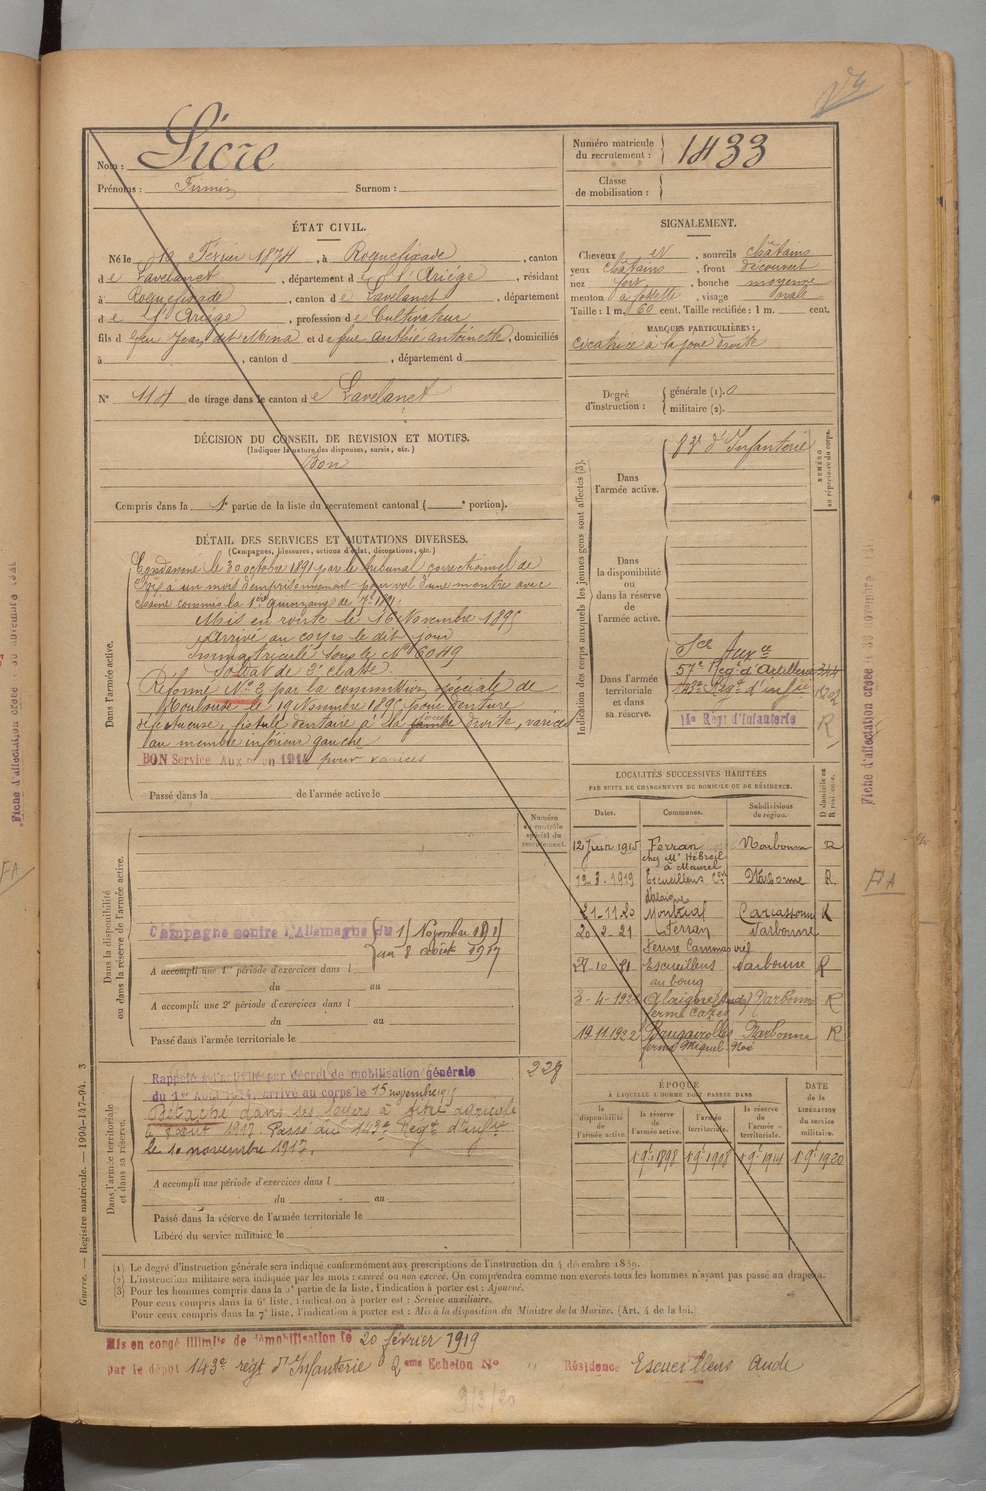 Nom : Sicre
Prénoms : Firmin Surnom :
Numéro matricule du recrutement : 1433
Classe de mobilisation :
ÉTAT CIVIL.
Né le 12 Février 1874, à Roquefixade, canton
de Lavelanet, département de l'Ariége, résidant
à Roquefixade, canton de Lavelanet, département
de l'Ariége, profession de Cultivateur
fils d feu Jean, et de feue antoinette, domiciliés
à , canton d , département d
N° 114 de tirage dans le canton de Lavelanet
DÉCISION DU CONSEIL DE REVISION ET MOTIFS.
(Indiquer la nature des dispenses, sursis, etc.)
Bon
Compris dans la 1e partie de la liste du recrutement cantonal ( e portion).
SIGNALEMENT.
Cheveux et , sourcils châtains
yeux châtains , front découvert
nez fort , bouche moyenne
menton à fossette , visage ovale
Taille : 1 m. 60 cent. Taille rectifiée : 1 m. cent.
MARQUES PARTICULIÈRES :
cicatrice à la joue droite
Degré d'instruction : générale (1). 0
militaire (2).
DÉTAIL DES SERVICES ET MUTATIONS DIVERSES.
(Campagnes, blessures, actions d'éclat, décorations, etc.)
Dans l'armée active.
Condamné le 30 octobre 1891 par le tribunal correctionnel de
Foix à un mois d'emprisonnement pour vol d'une montre avec
chaine commis la 1ère quinzaine de 7bre 1891.
Mis en route le 16 Novembre 1895
Arrivé au corps le dit jour
Immatriculé sous le N° 6049
Soldat de 2e classe
Réformé N° 2 par la commission spéciale de
Toulouse le 19 Novembre 1895 pour denture
défectueuse, fistule dentaire à la joue droite, varices
au membre inférieur gauche
BON Service Aux en 1914 pour varices
Passé dans la de l'armée active le
Numéro au contrôle spécial du recrutement.
Indication des corps auxquels les jeunes gens sont affectés (3).
Dans l'armée active.
83e d'Infanterie
NUMÉRO au répertoire du corps.
Dans la disponibilité ou dans la réserve de l'armée active.
Dans l'armée territoriale et dans sa réserve.
Sce Auxre
57e Regt d'Artillerie
143e Regt d'infie
14e Régt d'Infanterie R
LOCALITÉS SUCCESSIVES HABITÉES
PAR SUITE DE CHANGEMENTS DE DOMICILE OU DE RÉSIDENCE.
Dates. Communes. Subdivisions de région. D domicile ou R résidence.
12 Juin 1915 Ferran Narbonne R
19.3.1919 Escueillens Narbonne R
21-11-20 Montréal Carcassonne R
20-2-21 Ferran Narbonne
29-10-21 Escueillens au bourg Narbonne R
3-4-1922 Alaigne (Aude) ferme Cazes Narbonne R
19.11.1922 Brugairolles Narbonne R
Dans la disponibilité ou dans la réserve de l'armée active.
Campagne contre l'Allemagne du 15 Novembre 1915
au 8 août 1917
A accompli une 1re période d'exercices dans l
du au
A accompli une 2e période d'exercices dans l
du au
Passé dans l'armée territoriale le
228
Dans l'armée territoriale et dans sa réserve.
Rappelé à l'activité par décret de mobilisation générale
du 1er Août 1914, arrivé au corps le 15 novembre 1915
Détaché dans ses foyers à titre agricole
8 août 1917. Passé au 143e Regt d'infie
le 10 novembre 1917.
A accompli une période d'exercices dans l
du au
Passé dans la réserve de l'armée territoriale le
Libéré du service militaire le
ÉPOQUE
À LAQUELLE L'HOMME DOIT PASSER DANS
la disponibilité de l'armée active. la réserve de l'armée active. l'armée territoriale. la réserve de l'armée territoriale.
DATE de la LIBÉRATION du service militaire.
1 9bre 1898 1 9bre 1908 1 9bre 1914 1 9bre 1920
(1) Le degré d'instruction générale sera indiqué conformément aux prescriptions de l'instruction du 4 décembre 1889.
(2) L'instruction militaire sera indiquée par les mots : exercé ou non exercé. On comprendra comme non exercés tous les hommes n'ayant pas passé au drapeau.
(3) Pour les hommes compris dans la 5e partie de la liste, l'indication à porter est : Ajourné.
Pour ceux compris dans la 6e liste, l'indication à porter est : Service auxiliaire.
Pour ceux compris dans la 7e liste, l'indication à porter est : Mis à la disposition du Ministre de la Marine. (Art. 4 de la loi.)
Guerre. — Registre matricule. — 1994-147-94. 3
Mis en congé illimité de démobilisation le 20 février 1919
par le dépôt 143e régt d'Infanterie 2eme Echelon N° " Résidence Escueillens Aude
9/3/20
Fiche d'affectation créée le 30 novembre
FA